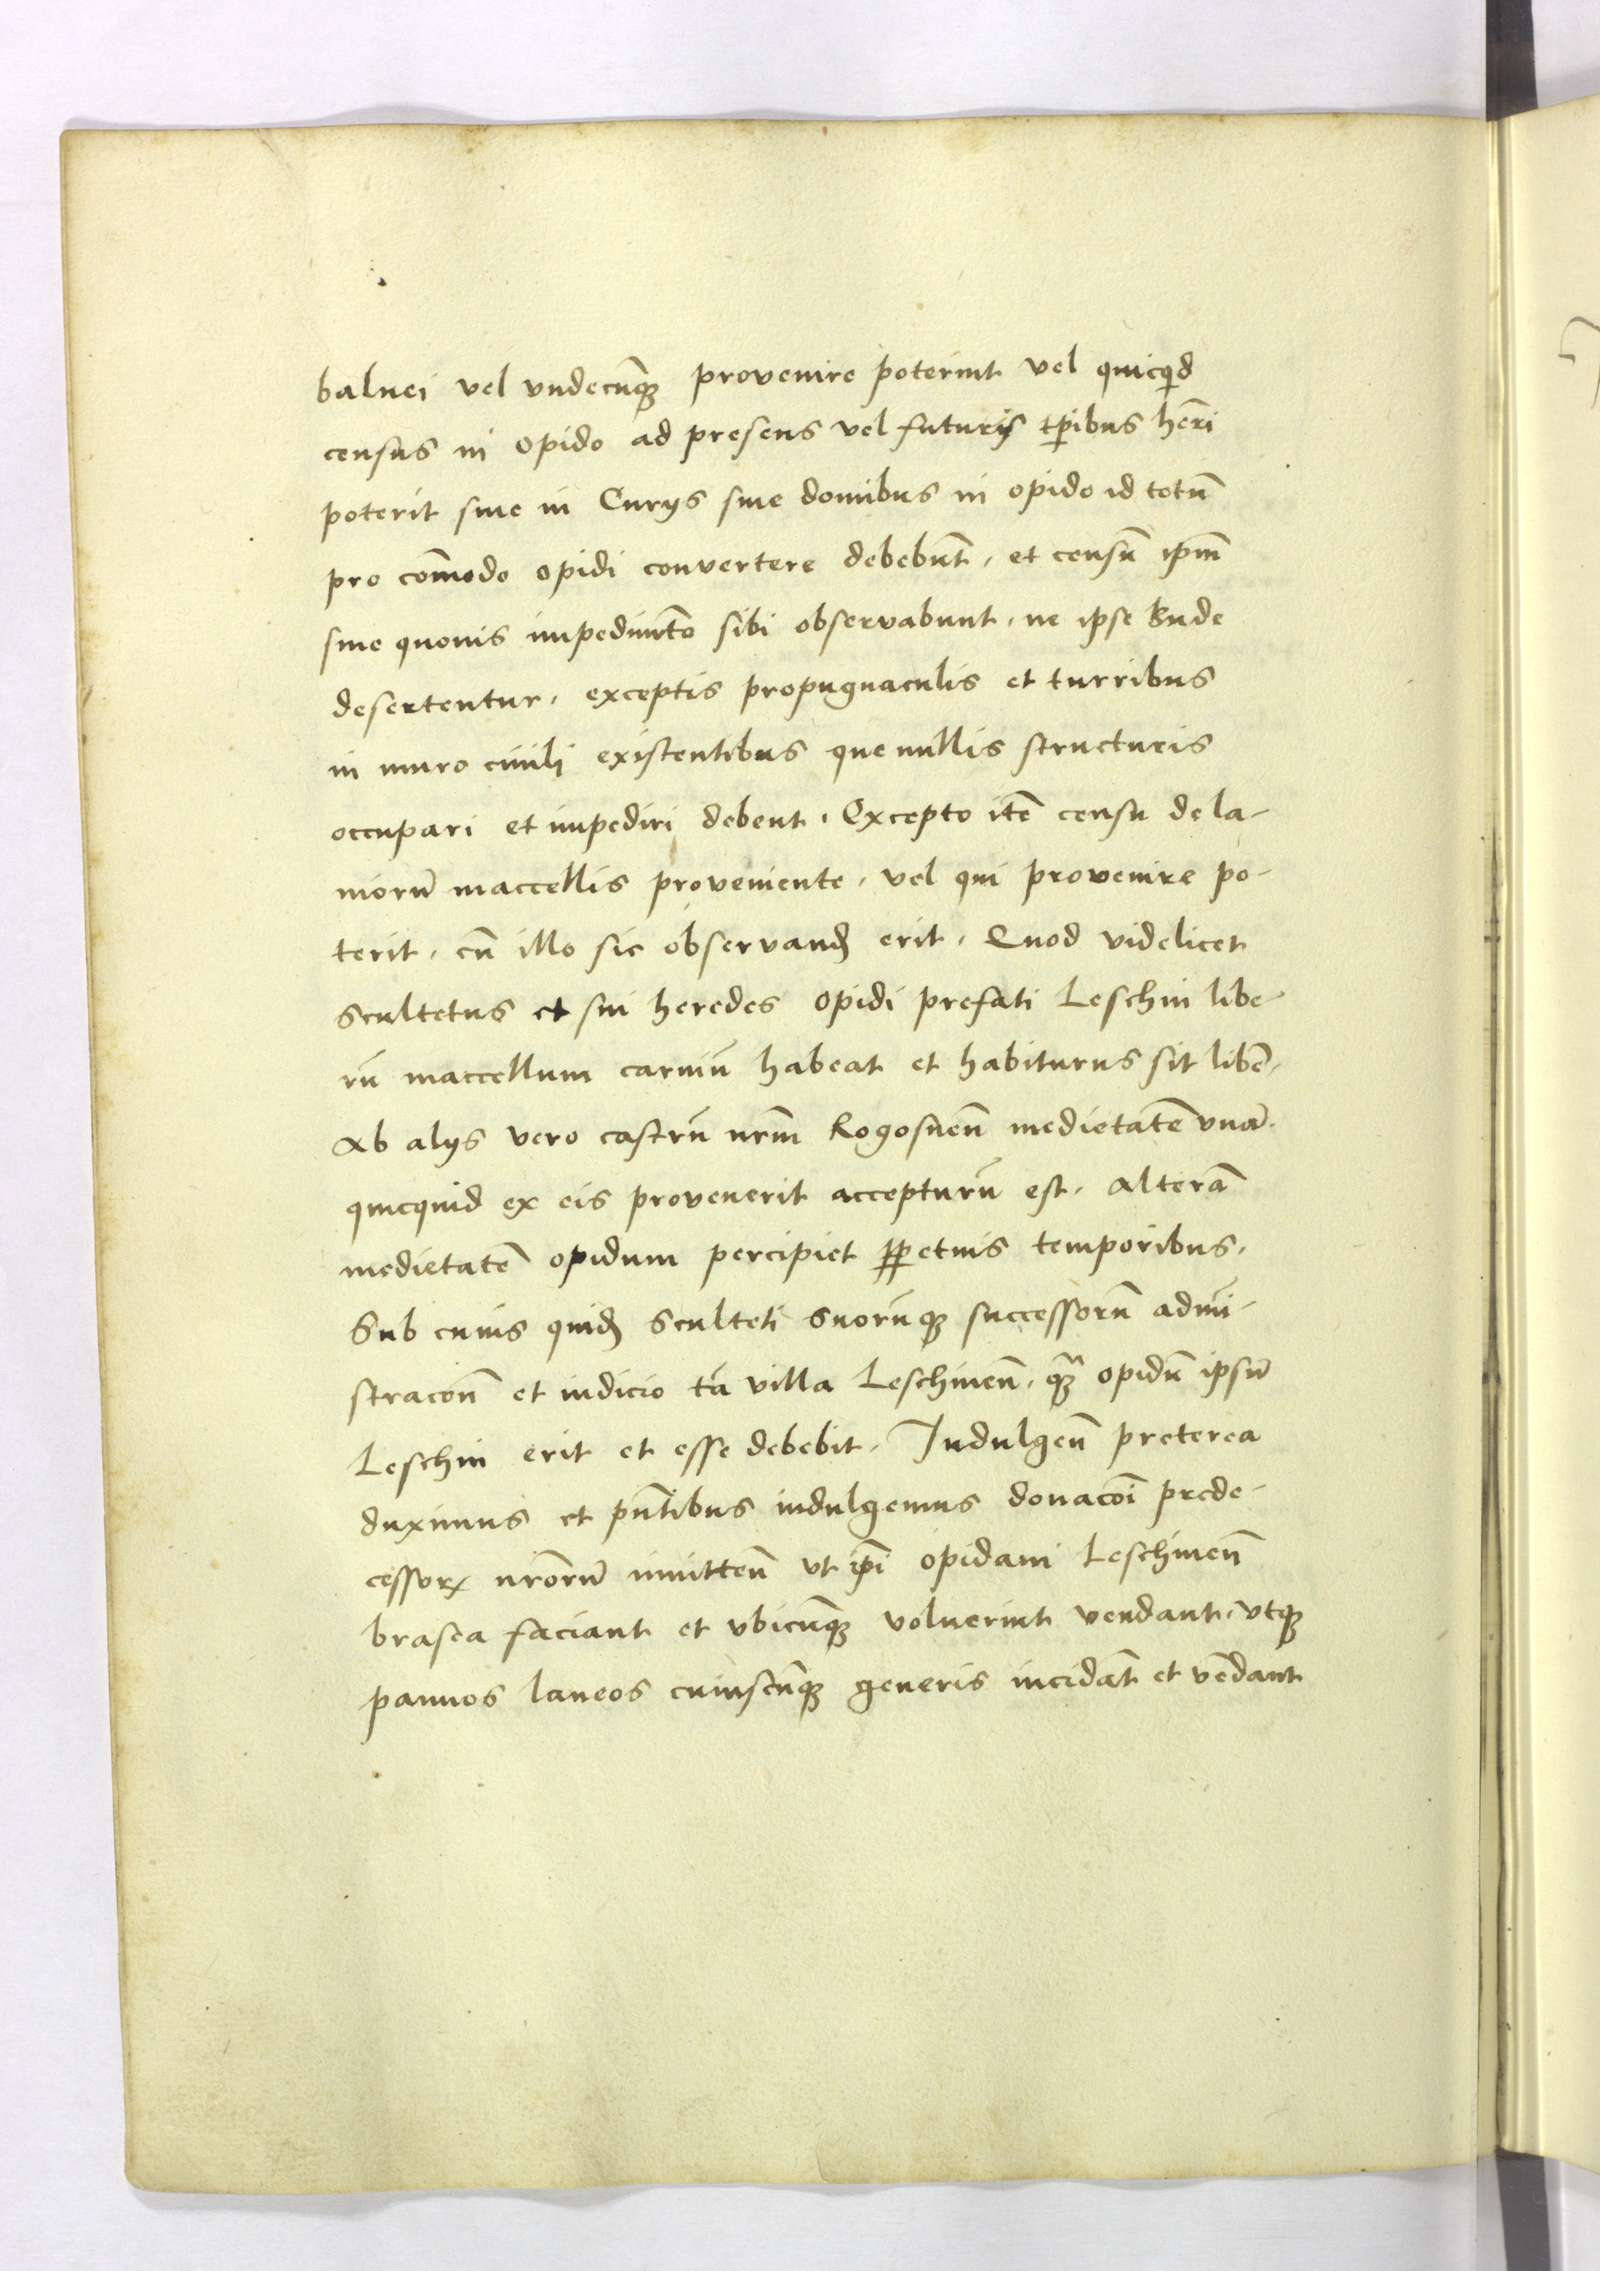 balnei vel vndecūqꝫ provenire poterint vel quicq̨d
census in opido ad presens vel futuris tp̄ibus hēri
poterit siue in Curijs siue domibus in opido id totū
pro cōmodo opidi convertere debebūt, et censū ip̄m
sine quouis impedimēto sibi observabunt, ne ipse
desertentur, exceptis propugnaculis et turribus
in muro ciuili existentibus que nullis structuris
occupari et impediri debent, Excepto itē censu de la-
niorū maccellis proveniente, vel qui provenire po-
terit, cū illo sic observandꝫ erit, Quod videlicet
Scultetus et sui heredes opidi prefati Leschin libe-
rū maccellum carniū habeat et habiturus sit libē,
Ab alijs vero castrū nr̄m Rogosnen̄ medietatē vnā,
quicquid ex eis provenerit accepturū est, alterā
medietatē opidum percipiet ꝑpetuis temporibus,
Sub cuius quidꝫ Sculteti suorūqꝫ successorū admi-
stracōn et iudicio tā villa Leschinen̄, qꝫ opidū ipsū
Leschin erit et esse debebit, Indulgen̄ preterea
duximus et pn̄tibus indulgemus donacōi prede-
cessorꝝ nr̄orū innitten̄ vt ip̄i opidani Leschinen̄
brasea faciant et vbicūqꝫ voluerint vendant, vtqꝫ
pannos laneos cuiuscūqꝫ generis incidāt et vēdant